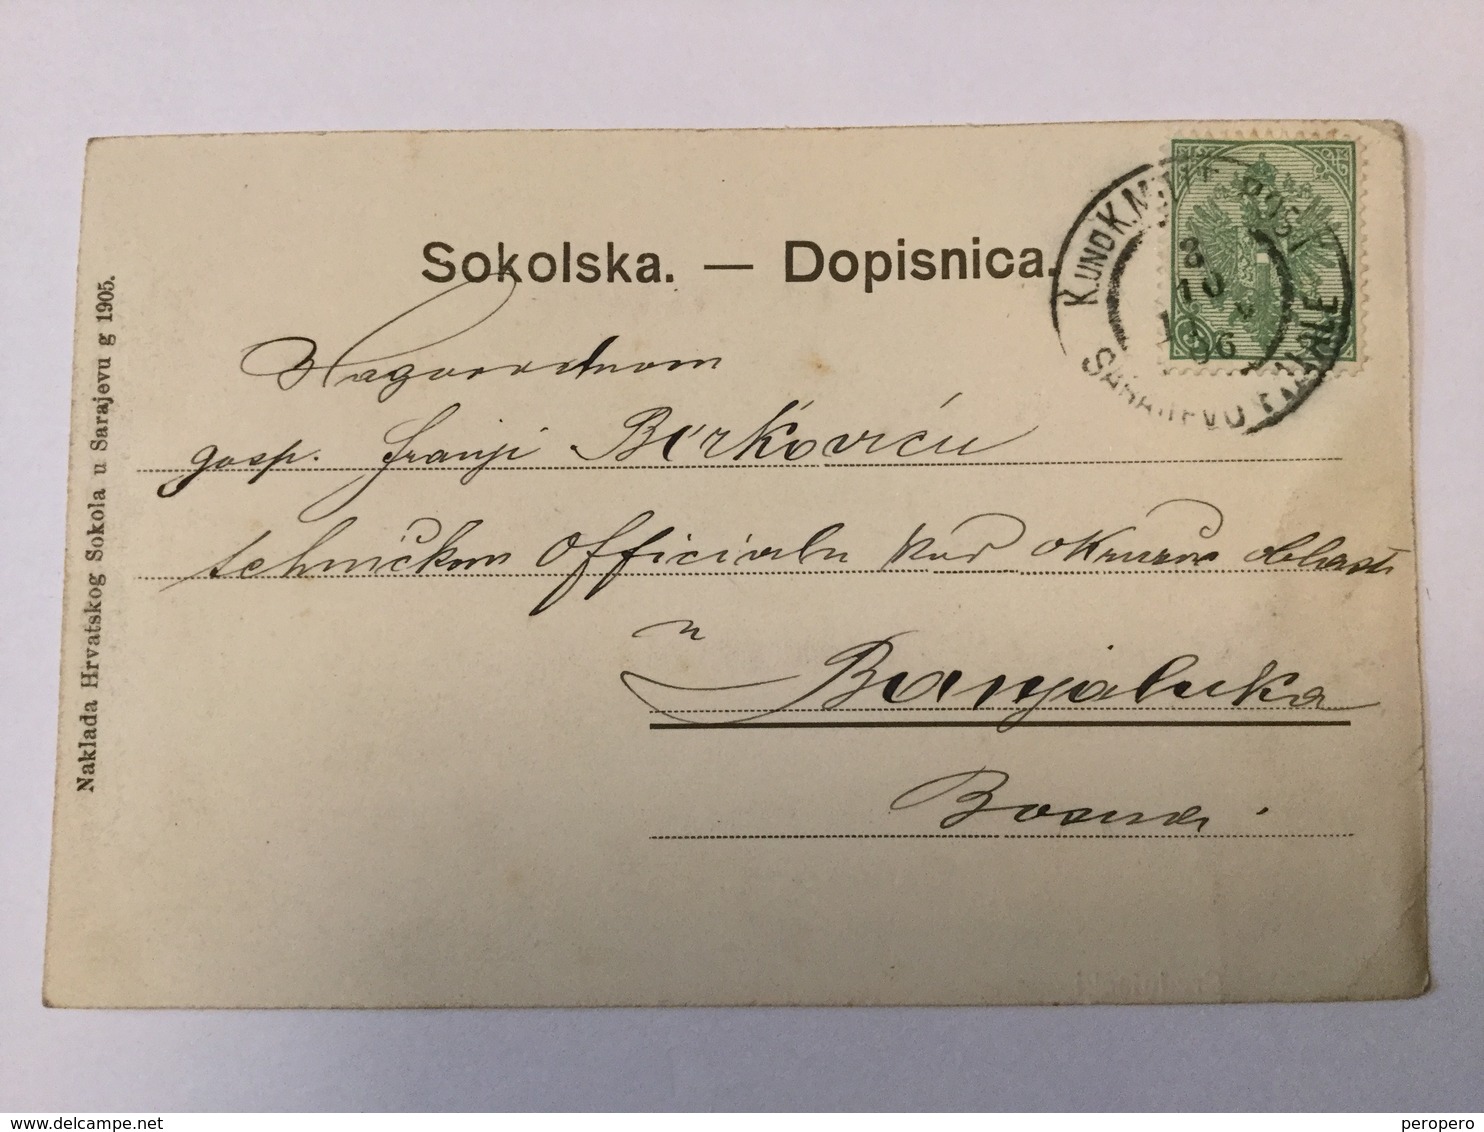 Sokolska. — Dopisnica.
K. UND K. MILIT. POST
8
10
06
SARAJEVO FILIALE
Nakladа Hrvatskog Sokola u Sarajevu g 1905.
Blagorodnom
gosp. Franji Berkoviću
tehničkom Officialu kod okružne oblasti
u
Banjaluka
Bosna.
www.delcampe.net
peropero